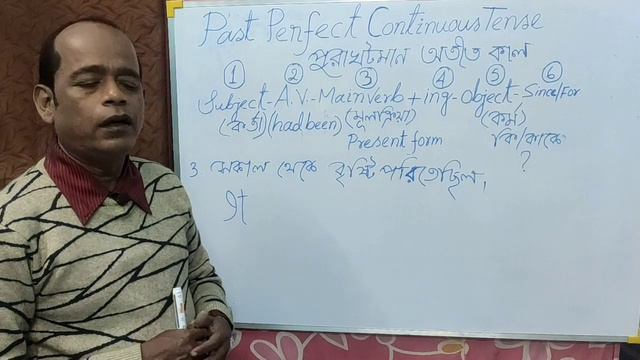 Past Perfect Continuous Tense
পুরাঘটমান অতীত কাল
1 2 3 4 5 6
Subject-A.V.-Mainverb+ing-Object-Since/For
(কর্তা)(had been)(মূলক্রিয়া) (কর্ম)
Present form কি/কাকে
?
3 সকাল থেকে বৃষ্টি পরিতেছিল,
It